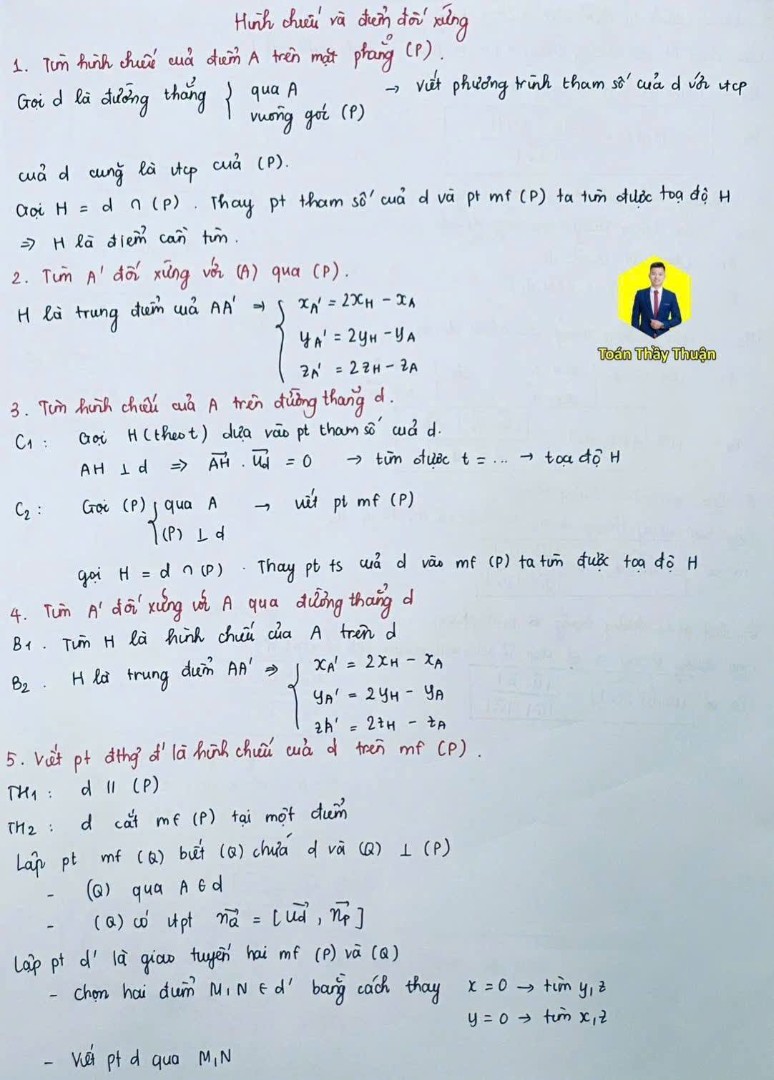 Hình chiếu và điểm đối xứng
1. Tìm hình chiếu của điểm A trên mặt phẳng (P).
Gọi d là đường thẳng { qua A → viết phương trình tham số của d với vtcp
vuông góc (P)
của d cũng là vtcp của (P).
Gọi H = d ∩ (P). Thay pt tham số của d và pt mf (P) ta tìm được toạ độ H
=> H là điểm cần tìm.
2. Tìm A' đối xứng với (A) qua (P).
H là trung điểm của AA' => { xA' = 2xH - xA
yA' = 2yH - yA
zA' = 2zH - zA
Toán Thầy Thuận
3. Tìm hình chiếu của A trên đường thẳng d.
C1: Gọi H (theo t) dựa vào pt tham số của d.
AH ⊥ d => AH→ . ud→ = 0 → tìm được t = ... → toạ độ H
C2: Gọi (P) { qua A → viết pt mf (P)
(P) ⊥ d
gọi H = d ∩ (P). Thay pt ts của d vào mf (P) ta tìm được toạ độ H
4. Tìm A' đối xứng với A qua đường thẳng d
B1. Tìm H là hình chiếu của A trên d
B2. H là trung điểm AA' => { xA' = 2xH - xA
yA' = 2yH - yA
zA' = 2zH - zA
5. Viết pt đthg d' là hình chiếu của d trên mf (P).
TH1: d || (P)
TH2: d cắt mf (P) tại một điểm
Lập pt mf (Q) biết (Q) chứa d và (Q) ⊥ (P)
- (Q) qua A ∈ d
- (Q) có vtpt nQ→ = [ud→, nP→]
Lập pt d' là giao tuyến hai mf (P) và (Q)
- Chọn hai điểm M, N ∈ d' bằng cách thay x = 0 → tìm y, z
y = 0 → tìm x, z
- Viết pt d qua M, N